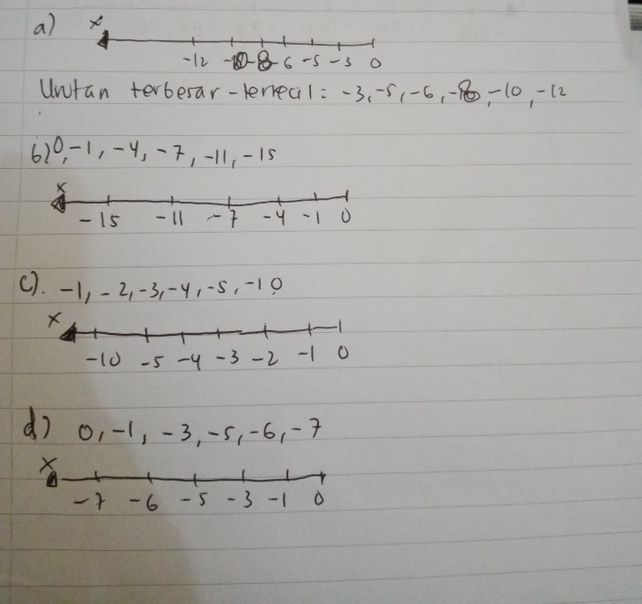 a)
x
-12 -10 -8 -6 -5 -3 0
Urutan terbesar - terkecil : -3, -5, -6, -8, -10, -12
b) 0, -1, -4, -7, -11, -15
x
-15 -11 -7 -4 -1 0
c). -1, -2, -3, -4, -5, -10
x
-10 -5 -4 -3 -2 -1 0
d) 0, -1, -3, -5, -6, -7
x
-7 -6 -5 -3 -1 0